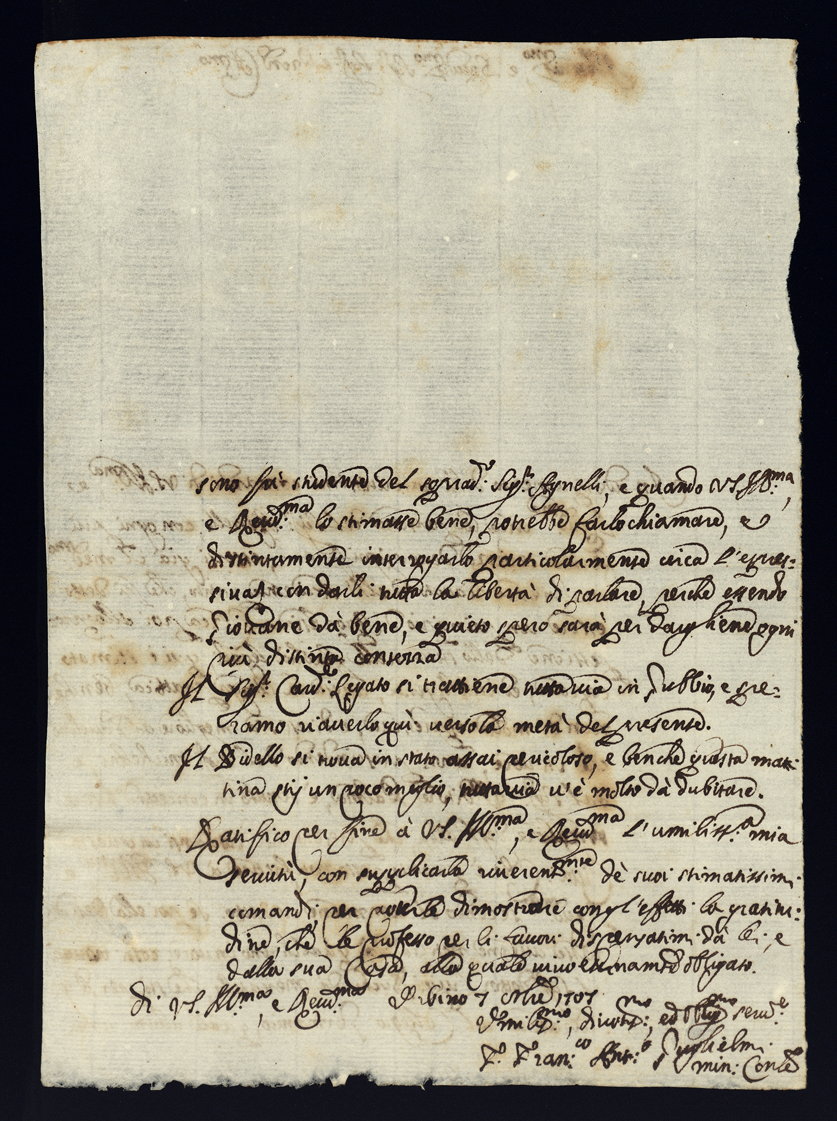 sono fù studente del soprad.º Sig.r Agnelli, e quando VS Ill.ma,
e Reud.ma lo stimasse bene, potrebbe farlo chiamare, e
distintamente interrogarlo particolarmente circa l'espres=
siua, con darli tutta la libertà di parlare, perche essendo
Giouane dà bene, e quieto però sarà per dargliene ogni
più distinta contezza
Il Sig.r Card. Legato si trattiene tuttauia in Gubbio, e spe=
ramo riauerlo quì verso la metà del presente.
Il Bidello si troua in stato assai pericoloso, e benche questa mat=
tina stij un poco meglio, tuttauia u'è molto dà dubitare.
Ratifico per fine à VS. Ill.ma, e Reud.ma l'umiliss.a mia
seruitù, con supplicarla riuerent.mte dè suoi stimatissimi
comandi per poterle dimostrare congl'effetti la gratitu=
dine, che le professo per li fauori dispensatimi dà lei, e
dalla sua Casa, alla quale viuo eternamte obligato.
di VS. Ill.ma, e Reud.ma Vrbino 7 1707
Vmiliss.mo, diuotis.mo, ed oblig.mo seru.e
F. Fran.co Ant.o Guglielmi
min: Conle